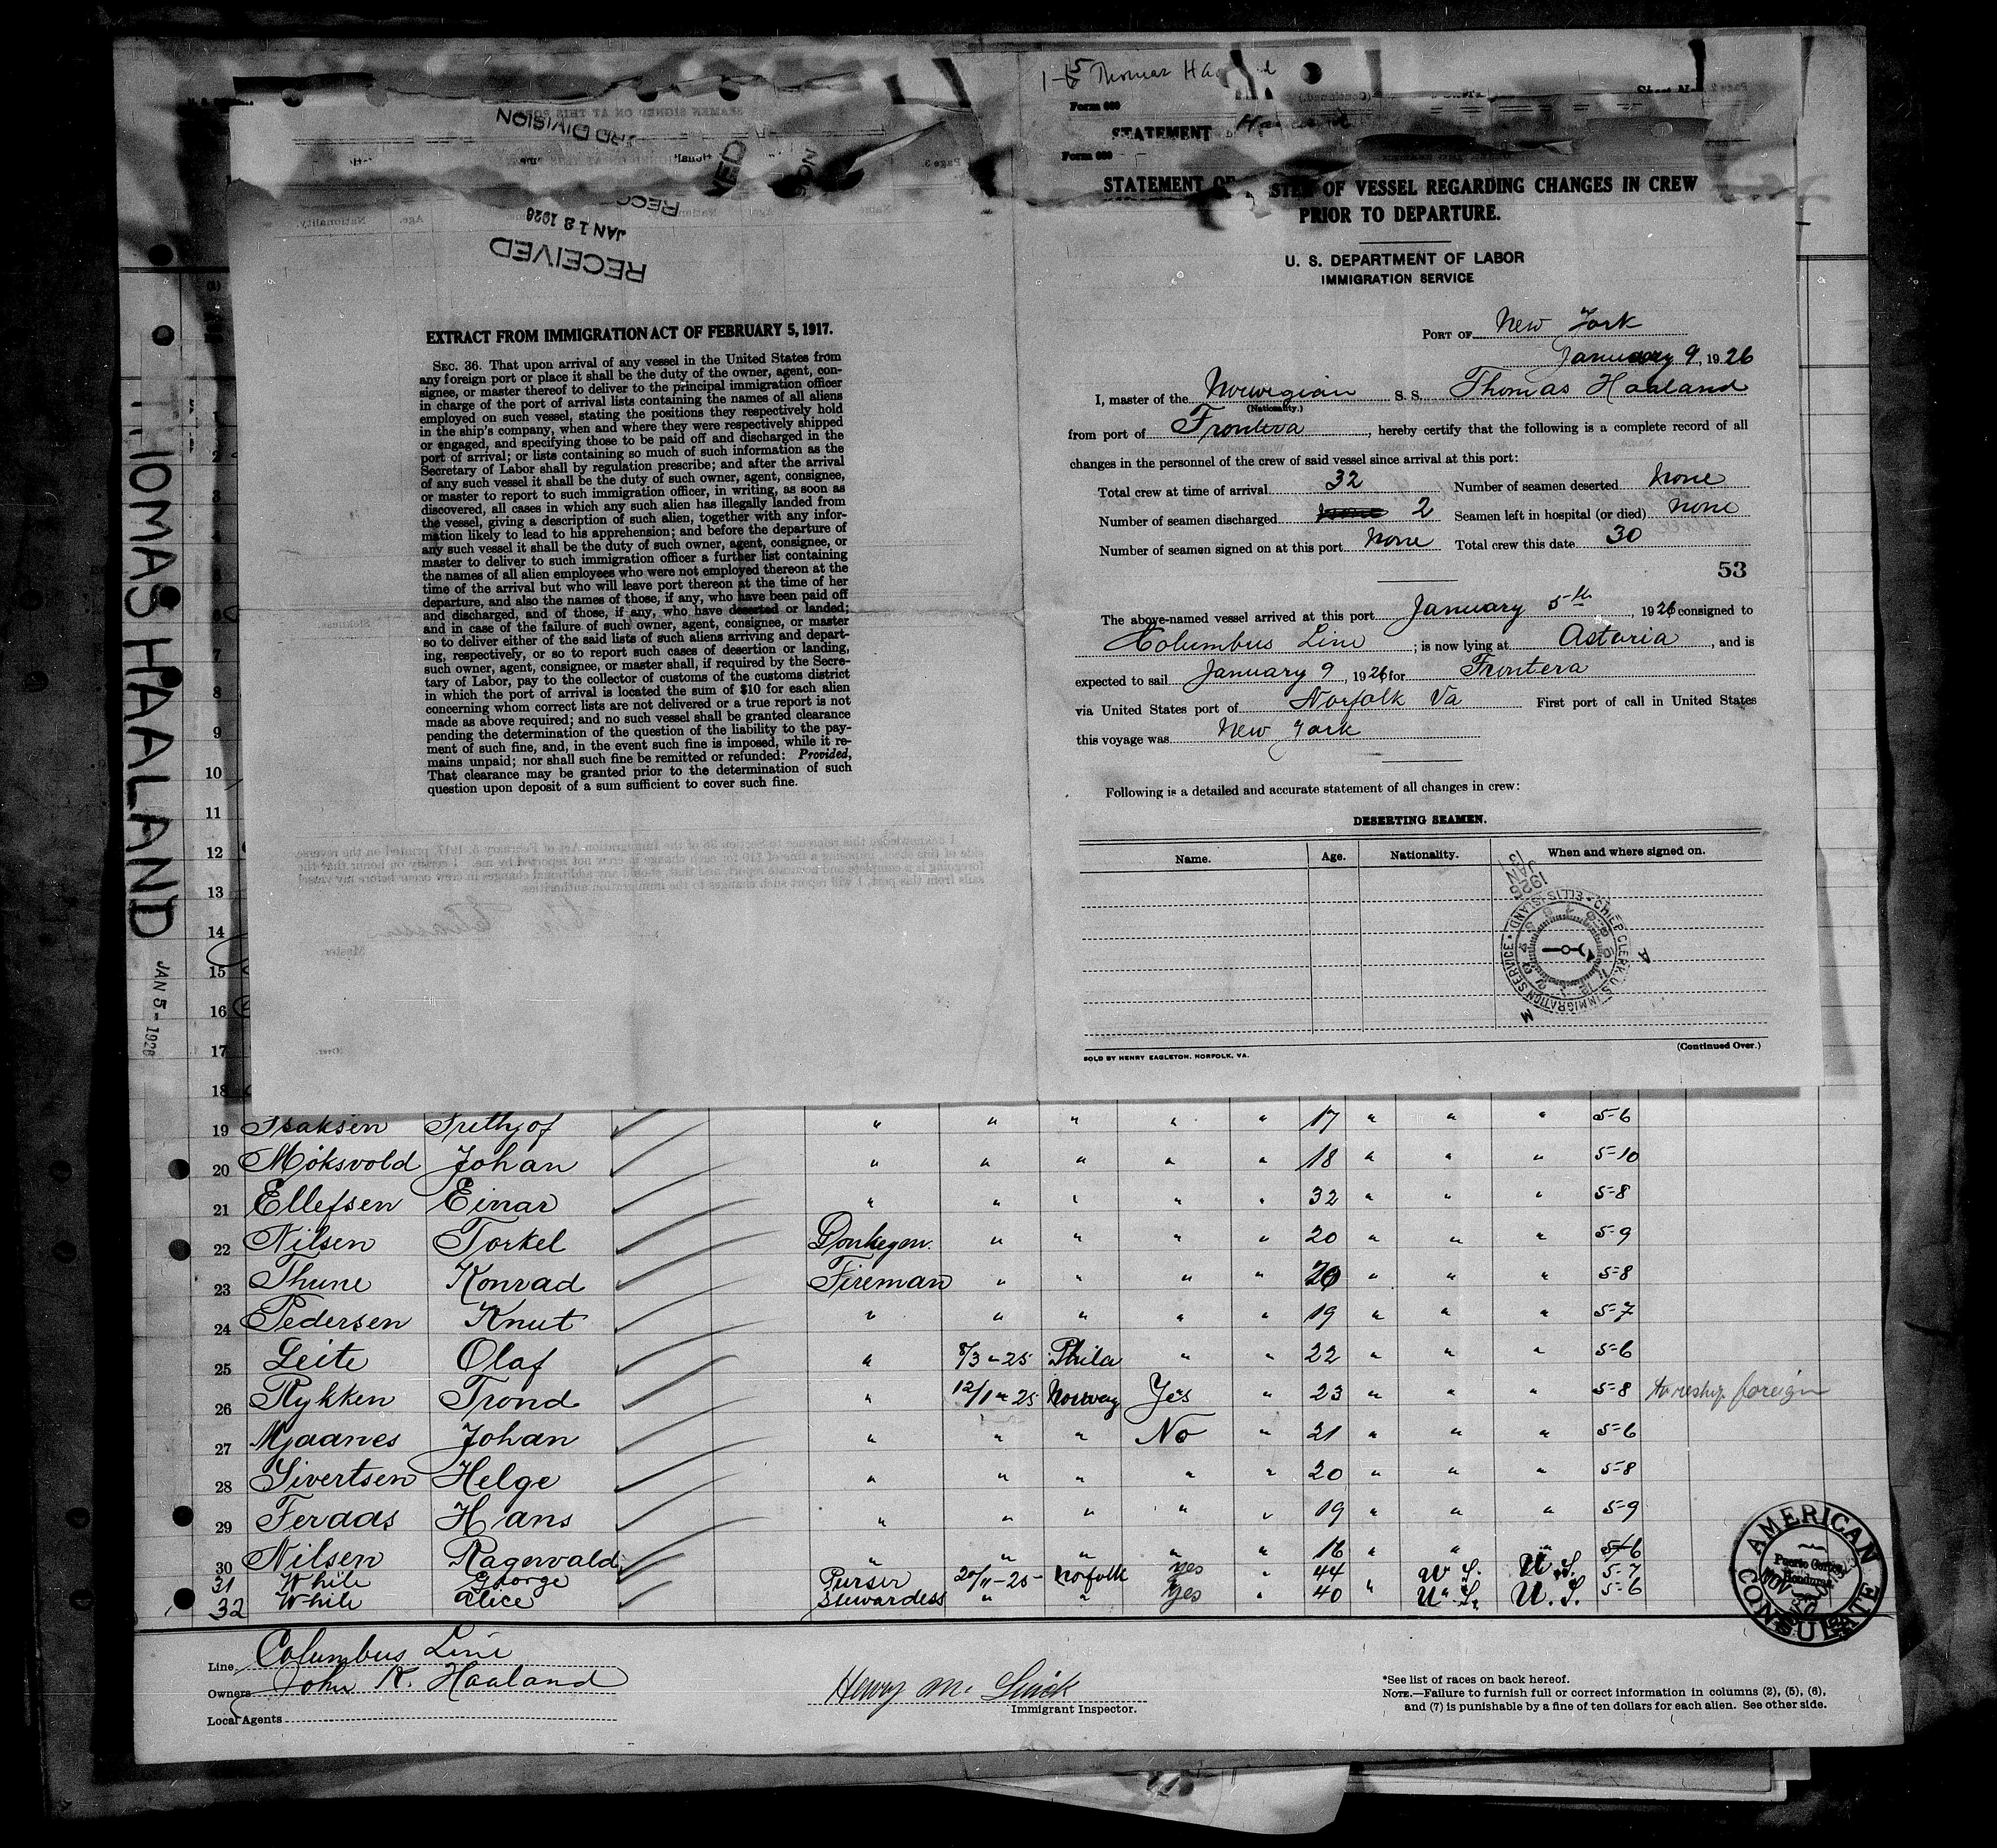 1-5 Thomas
Form 669
STATEMENT
Form 669
STATEMENT OF VESSEL REGARDING CHANGES IN CREW
PRIOR TO DEPARTURE.
U. S. DEPARTMENT OF LABOR
IMMIGRATION SERVICE
PORT OF New York
January 9, 1926
I, master of the Norwegian S. S. Thomas Haaland
(Nationality.)
from port of Frontera, hereby certify that the following is a complete record of all
changes in the personnel of the crew of said vessel since arrival at this port:
Total crew at time of arrival 32 Number of seamen deserted None
Number of seamen discharged 2 Seamen left in hospital (or died) None
Number of seamen signed on at this port None Total crew this date 30
53
The above-named vessel arrived at this port January 5th, 1926 consigned to
Columbus Line; is now lying at Astoria, and is
expected to sail January 9, 1926 for Frontera
via United States port of Norfolk Va First port of call in United States
this voyage was New York
Following is a detailed and accurate statement of all changes in crew:
DESERTING SEAMEN.
Name. Age. Nationality. When and where signed on.
JAN 13 1926
CHIEF CLERK, U.S. IMMIGRATION SERVICE • ELLIS ISLAND •
SOLD BY HENRY EAGLETON, NORFOLK, VA.
(Continued Over.)
RECEIVED
JAN 18 1926
RECORD DIVISION
EXTRACT FROM IMMIGRATION ACT OF FEBRUARY 5, 1917.
SEC. 36. That upon arrival of any vessel in the United States from
any foreign port or place it shall be the duty of the owner, agent, con-
signee, or master thereof to deliver to the principal immigration officer
in charge of the port of arrival lists containing the names of all aliens
employed on such vessel, stating the positions they respectively hold
in the ship's company, when and where they were respectively shipped
or engaged, and specifying those to be paid off and discharged in the
port of arrival; or lists containing so much of such information as the
Secretary of Labor shall by regulation prescribe; and after the arrival
of any such vessel it shall be the duty of such owner, agent, consignee,
or master to report to such immigration officer, in writing, as soon as
discovered, all cases in which any such alien has illegally landed from
the vessel, giving a description of such alien, together with any infor-
mation likely to lead to his apprehension; and before the departure of
any such vessel it shall be the duty of such owner, agent, consignee, or
master to deliver to such immigration officer a further list containing
the names of all alien employees who were not employed thereon at the
time of the arrival but who will leave port thereon at the time of her
departure, and also the names of those, if any, who have been paid off
and discharged, and of those, if any, who have deserted or landed;
and in case of the failure of such owner, agent, consignee, or master
so to deliver either of the said lists of such aliens arriving and depart-
ing, respectively, or so to report such cases of desertion or landing,
such owner, agent, consignee, or master shall, if required by the Secre-
tary of Labor, pay to the collector of customs of the customs district
in which the port of arrival is located the sum of $10 for each alien
concerning whom correct lists are not delivered or a true report is not
made as above required; and no such vessel shall be granted clearance
pending the determination of the question of the liability to the pay-
ment of such fine, and, in the event such fine is imposed, while it re-
mains unpaid; nor shall such fine be remitted or refunded: Provided,
That clearance may be granted prior to the determination of such
question upon deposit of a sum sufficient to cover such fine.
THOMAS HAALAND
JAN 5 - 1926
1
2
3
4
5
6
7
8
9
10
11
12
13
14
15
16
17
18
19 Isaksen Frithjof " " " " " 17 " " " 5-6
20 Moksvold Johan " " " " " 18 " " " 5-10
21 Ellefsen Einar " " " " " 32 " " " 5-8
22 Nilsen Torkel Donkeym. " " " " 20 " " " 5-9
23 Thune Konrad Fireman " " " " 20 " " " 5-8
24 Pedersen Knut " " " " " 19 " " " 5-7
25 Leite Olaf " 8/3-25 Phila " " 22 " " " 5-6
26 Rykken Trond " 12/1-25 Norway Yes " 23 " " " 5-8 to reship foreign
27 Mjaanes Johan " " " No " 21 " " " 5-6
28 Sivertsen Helge " " " " " 20 " " " 5-8
29 Feraas Hans " " " " " 19 " " " 5-9
30 Nilsen Ragnvald " " " " " 16 " " " 5-6
31 White George Purser 20/11-25- Norfolk yes " 44 U.S. U.S. 5-7
32 White Alice Stewardess " " yes " 40 " U.S. U.S. 5-6
AMERICAN CONSULATE
Puerto Cortes
Honduras
Line Columbus Line
Owners John K. Haaland
Local Agents
Henry M.
Immigrant Inspector.
*See list of races on back hereof.
NOTE.—Failure to furnish full or correct information in columns (2), (5), (6),
and (7) is punishable by a fine of ten dollars for each alien. See other side.